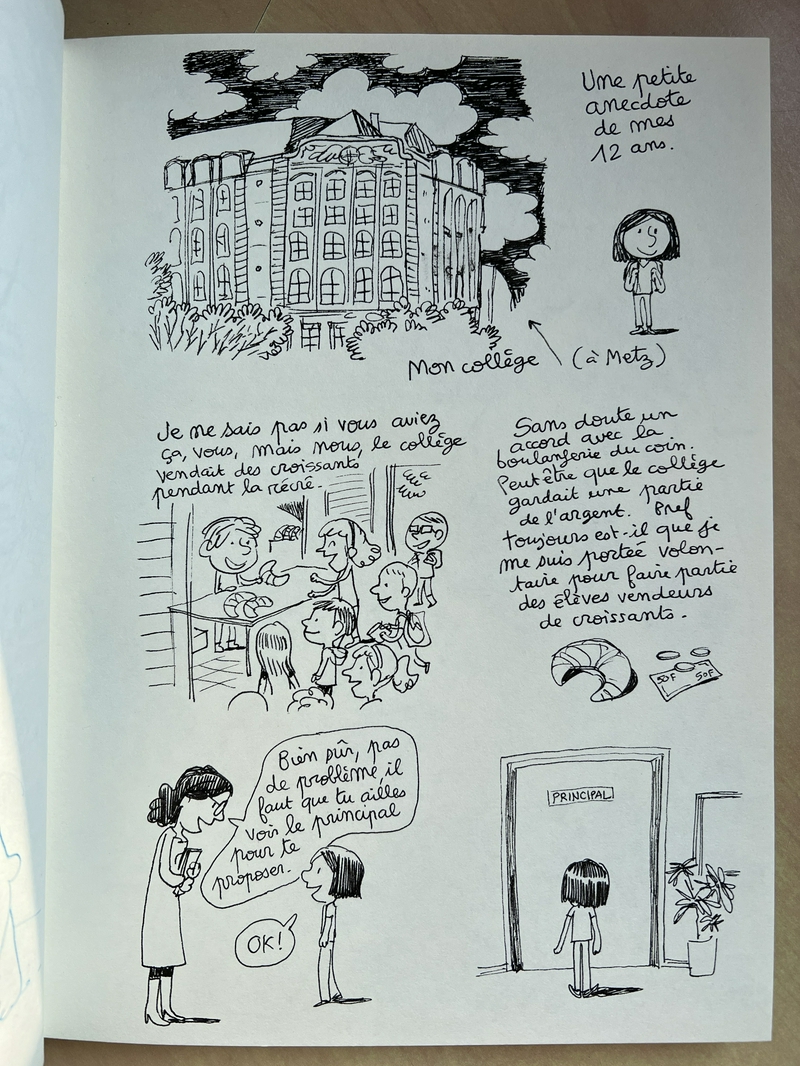 Une petite
anecdote
de mes
12 ans.
Mon collège (à Metz)
Je ne sais pas si vous aviez
ça, vous, mais nous, le collège
vendait des croissants
pendant la récré.
Sans doute un
accord avec la
boulangerie du coin.
Peut être que le collège
gardait une partie
de l'argent. Bref
toujours est-il que je
me suis portée volon-
taire pour faire partie
des élèves vendeurs
de croissants.
50F 50F
Bien sûr, pas
de problème, il
faut que tu ailles
voir le principal
pour te
proposer.
OK!
PRINCIPAL